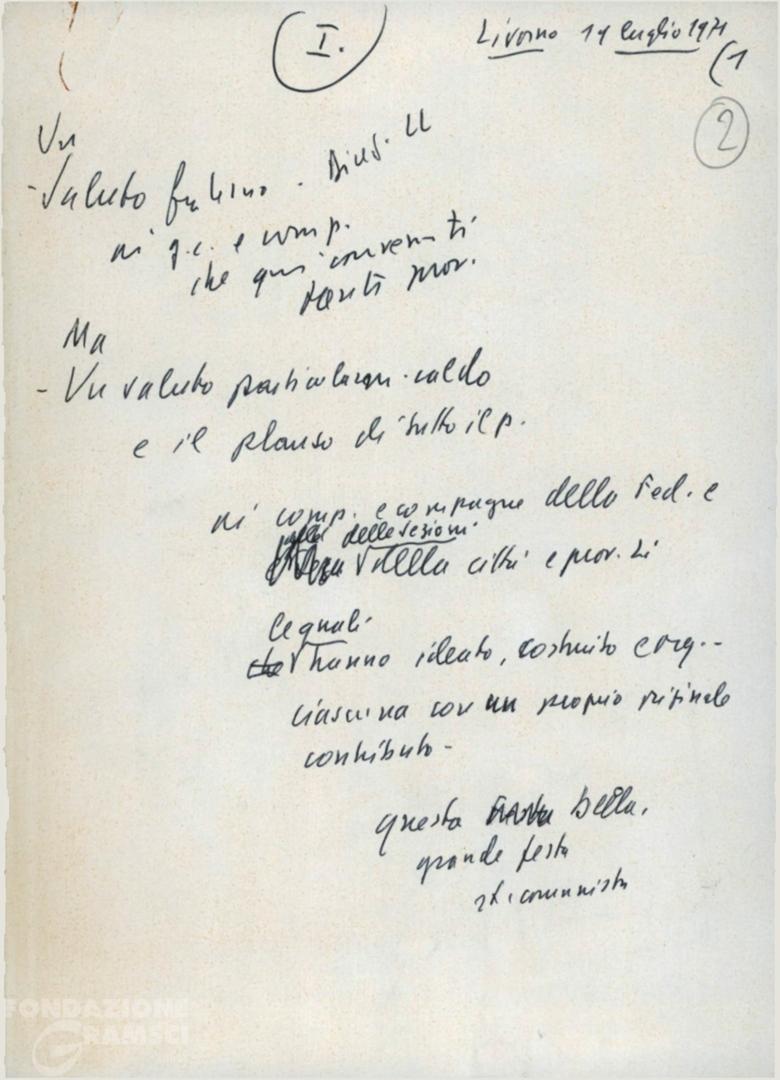 I.
Livorno 14 luglio 1971
(1
2
Un
- saluto fraterno.
ai g.c. e comp.
che qui convenuti
tante prov.
Ma
- Un saluto particolarm. caldo
e il plauso di tutto il p.
ai comp. e compagne della Fed. e
delle sezioni
della città e prov. Li
le quali
che hanno ideato, costruito e org.
ciascuna con un proprio originale
contributo -
questa bella,
grande festa
comunista
FONDAZIONE
GRAMSCI